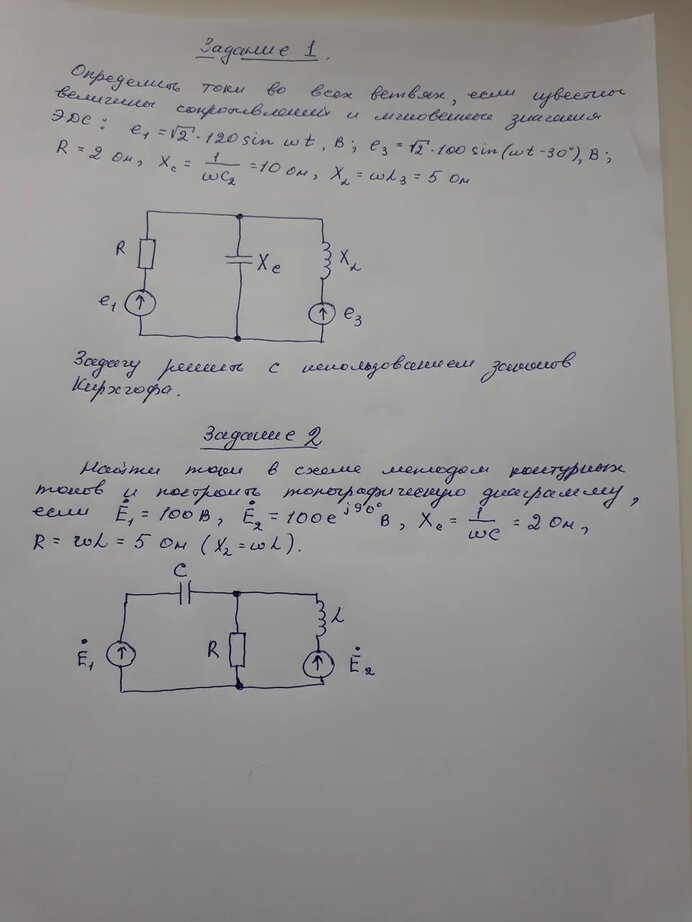 Задание 1.
Определить токи во всех ветвях, если известны
величины сопротивлений и мгновенные значения
ЭДС: e₁ = √2 · 120 sin wt, В; e₃ = √2 · 100 sin(wt - 30°), В;
R = 2 Ом, Xc = 1/wC₂ = 10 Ом, X_L = wL₃ = 5 Ом
R
Xc
X_L
e₁
e₃
Задачу решить с использованием законов
Кирхгофа.
Задание 2
Найти токи в схеме методом контурных
токов и построить топографическую диаграмму,
если Ė₁ = 100 В, Ė₂ = 100 e^j90° В, Xc = 1/wC = 2 Ом,
R = wL = 5 Ом (X₂ = wL).
C
L
R
Ė₁
Ė₂